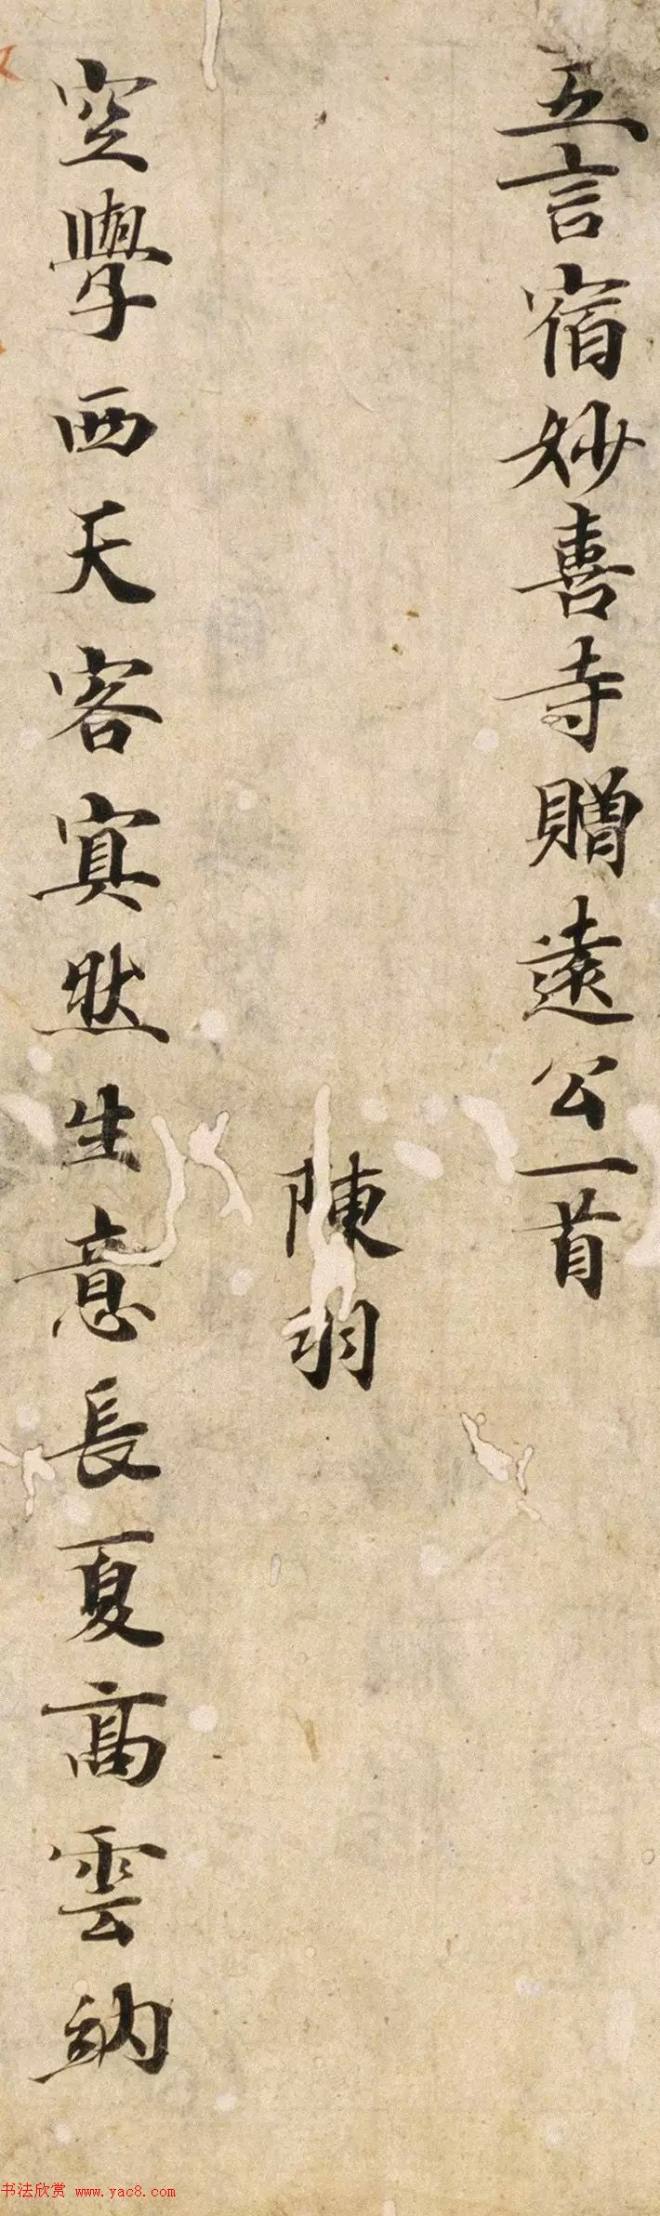 五言宿妙喜寺贈遠公一首
陳羽
空學西天客寘然生意長夏高雲納
书法欣赏 www.yac8.com